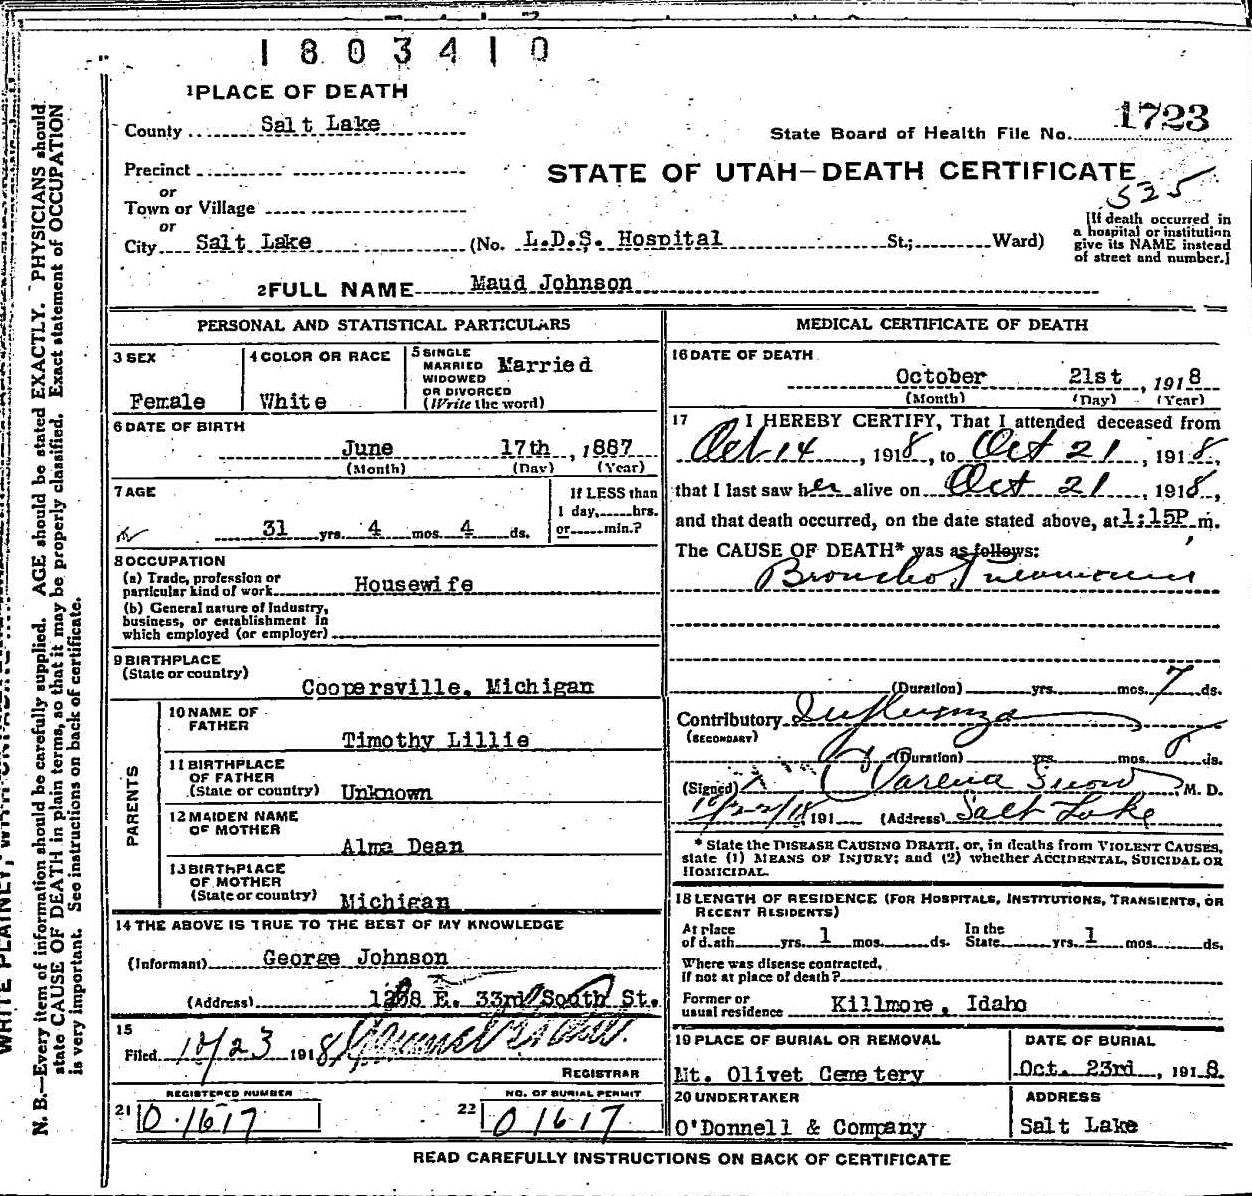 1803410
1PLACE OF DEATH
County Salt Lake
State Board of Health File No. 1723
Precinct
STATE OF UTAH—DEATH CERTIFICATE
or
535
Town or Village
or
City Salt Lake (No. L.D.S. Hospital St.; Ward)
[If death occurred in
a hospital or institution
give its NAME instead
of street and number.]
2FULL NAME Maud Johnson
PERSONAL AND STATISTICAL PARTICULARS
3 SEX
Female
4 COLOR OR RACE
White
5 SINGLE
MARRIED
WIDOWED
OR DIVORCED
(Write the word)
Married
6 DATE OF BIRTH
June 17th, 1887
(Month) (Day) (Year)
7 AGE
31 yrs. 4 mos. 4 ds.
If LESS than
1 day, hrs.
or min.?
8 OCCUPATION
(a) Trade, profession or
particular kind of work Housewife
(b) General nature of Industry,
business, or establishment in
which employed (or employer)
9 BIRTHPLACE
(State or country)
Coopersville, Michigan
PARENTS
10 NAME OF
FATHER
Timothy Lillie
11 BIRTHPLACE
OF FATHER
(State or country) Unknown
12 MAIDEN NAME
OF MOTHER
Alma Dean
13 BIRTHPLACE
OF MOTHER
(State or country) Michigan
14 THE ABOVE IS TRUE TO THE BEST OF MY KNOWLEDGE
(Informant) George Johnson
(Address) E. 33rd South St.
15
Filed 10/23 1918
REGISTRAR
REGISTERED NUMBER
21 0.1617
NO. OF BURIAL PERMIT
22 01617
MEDICAL CERTIFICATE OF DEATH
16 DATE OF DEATH
October 21st, 1918
(Month) (Day) (Year)
17 I HEREBY CERTIFY, That I attended deceased from
Oct 14, 1918, to Oct 21, 1918,
that I last saw her alive on Oct 21, 1918,
and that death occurred, on the date stated above, at 1:15P m.
The CAUSE OF DEATH* was as follows:
Broncho Pneumonia
(Duration) yrs. mos. 7 ds.
Contributory Influenza
(SECONDARY)
(Duration) yrs. mos. ds.
(Signed) Snow, M. D.
10/22/18, 191 (Address) Salt Lake
* State the DISEASE CAUSING DEATH, or, in deaths from VIOLENT CAUSES,
state (1) MEANS OF INJURY; and (2) whether ACCIDENTAL, SUICIDAL OR
HOMICIDAL.
18 LENGTH OF RESIDENCE (FOR HOSPITALS, INSTITUTIONS, TRANSIENTS, OR
RECENT RESIDENTS)
At place
of death yrs. 1 mos. ds.
In the
State yrs. 1 mos. ds.
Where was disease contracted,
If not at place of death?
Former or
usual residence Killmore, Idaho
19 PLACE OF BURIAL OR REMOVAL
Mt. Olivet Cemetery
DATE OF BURIAL
Oct. 23rd, 1918.
20 UNDERTAKER
O'Donnell & Company
ADDRESS
Salt Lake
READ CAREFULLY INSTRUCTIONS ON BACK OF CERTIFICATE
N. B.—Every item of information should be carefully supplied. AGE should be stated EXACTLY. PHYSICIANS should
state CAUSE OF DEATH in plain terms, so that it may be properly classified. Exact statement of OCCUPATION
is very important. See instructions on back of certificate.
WRITE PLAINLY, WITH